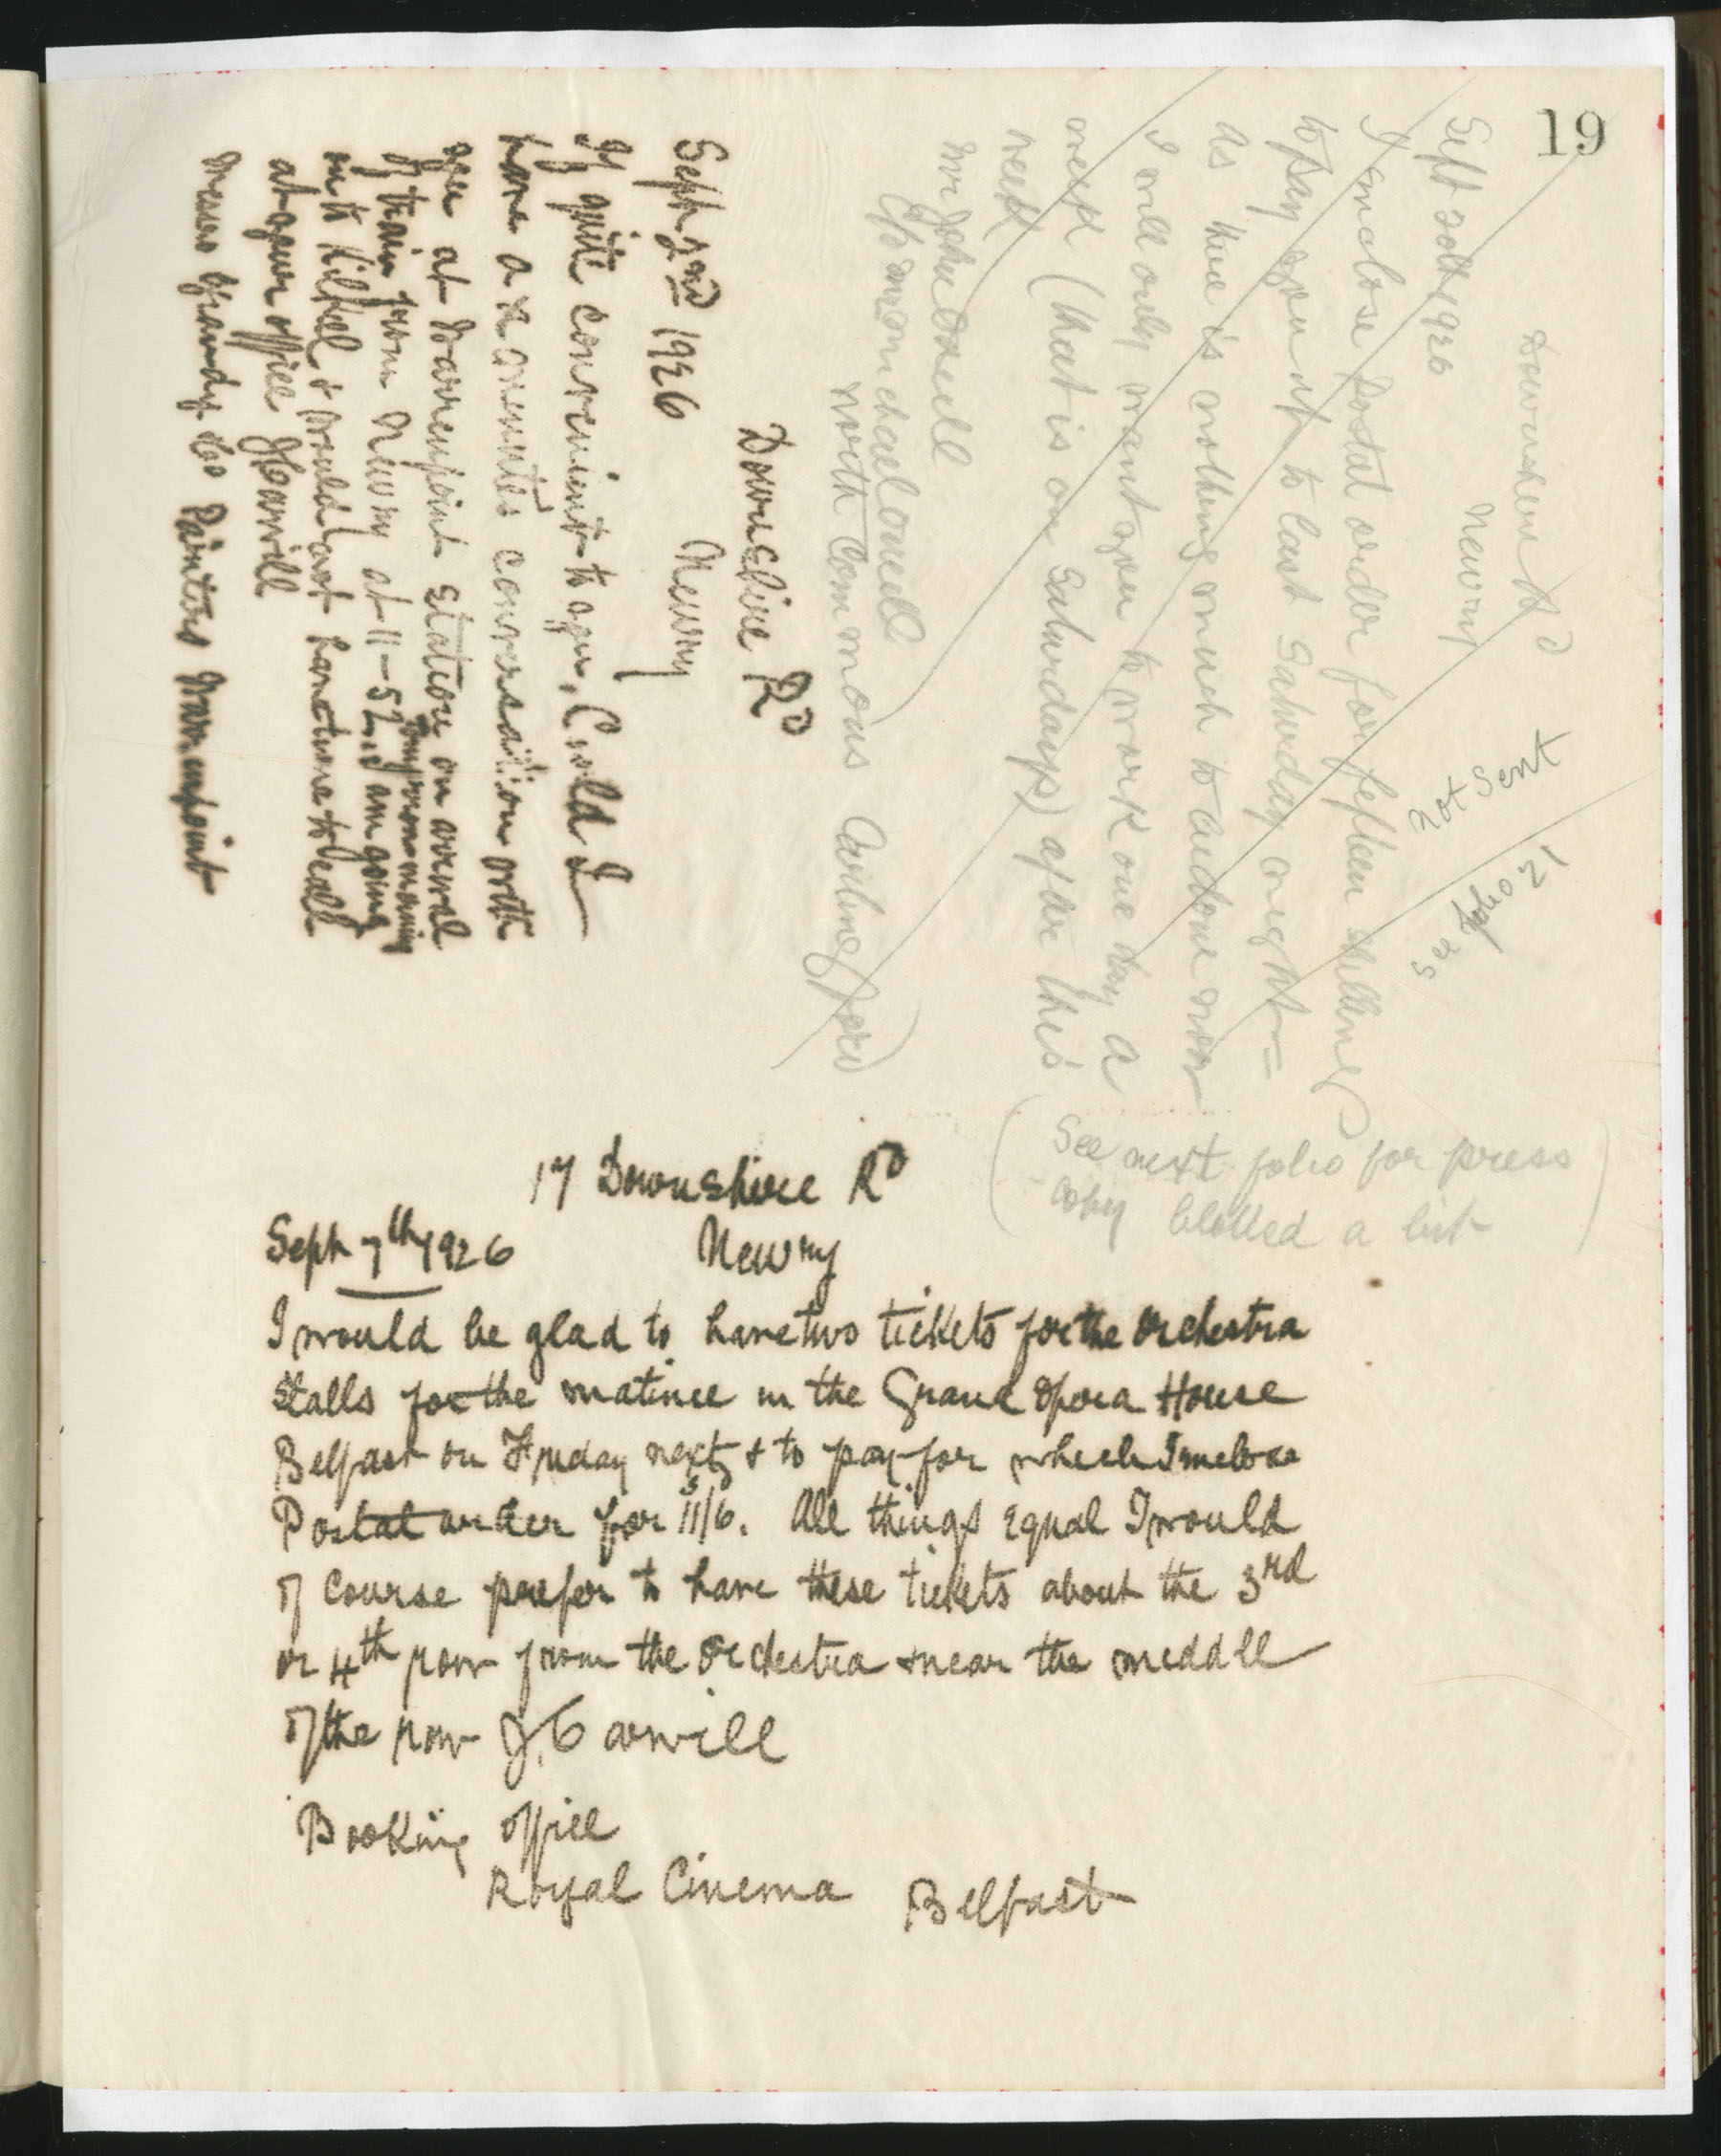 19
Downshire Rd
Newry
Sept 20th 1926
I enclose Postal order for fifteen shillings
to pay you up to last Saturday night =
As there is nothing much to be done now
I will only want you to work one day a
week (that is on Saturdays) after this
week
Mr John Oneill
C/o Mr Michael Oneill
North Commons Carlingford
not sent
see folio 21
(See next folio for press
copy blotted a bit)
Downshire Rd
Newry
Sept 2nd 1926
If quite convenient to you, Could I
have a x a minutes conversation with
you at Warrenpoint station on arrival
of train from Newry at 11-52
tomorrow morning
I am going
on to Kilkeel & would not have time to call
at your office J Carvill
Messrs Grandy & Co Painters Warrenpoint
17 Downshire Rd
Sept 7th 1926 Newry
I would be glad to have two tickets for the Orchestra
Stalls for the matinee in the Grand Opera House
Belfast on Friday next, & to pay for which I inclose
Postal order for 11s/6. All things equal I would
of course prefer to have these tickets about the 3rd
or 4th row from the Orchestra & near the middle
of the row J. Carvill
Booking office
Royal Cinema Belfast